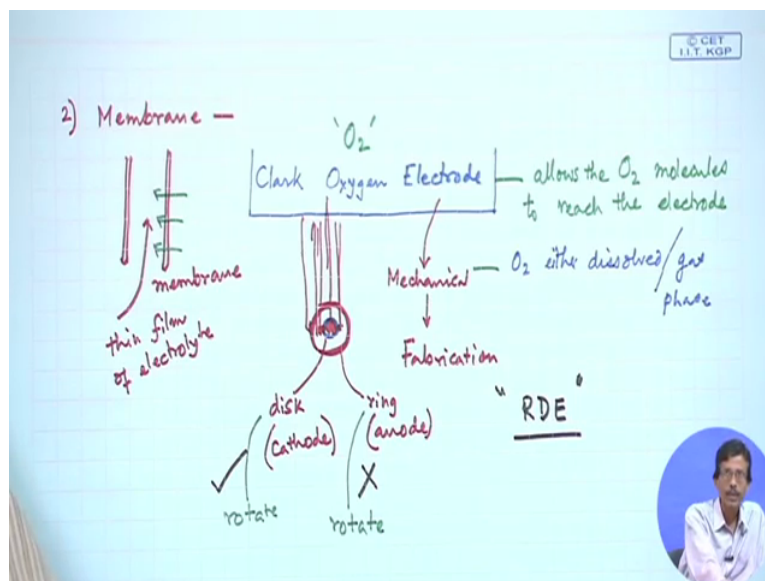 © CET
I.I.T. KGP
2) Membrane —
'O2'
Clark Oxygen Electrode
— allows the O2 molecules
to reach the electrode
membrane
thin film
of electrolyte
Mechanical
— O2 either dissolved/gas
phase
Fabrication
disk
(Cathode)
ring
(anode)
" RDE "
✓
X
rotate
rotate